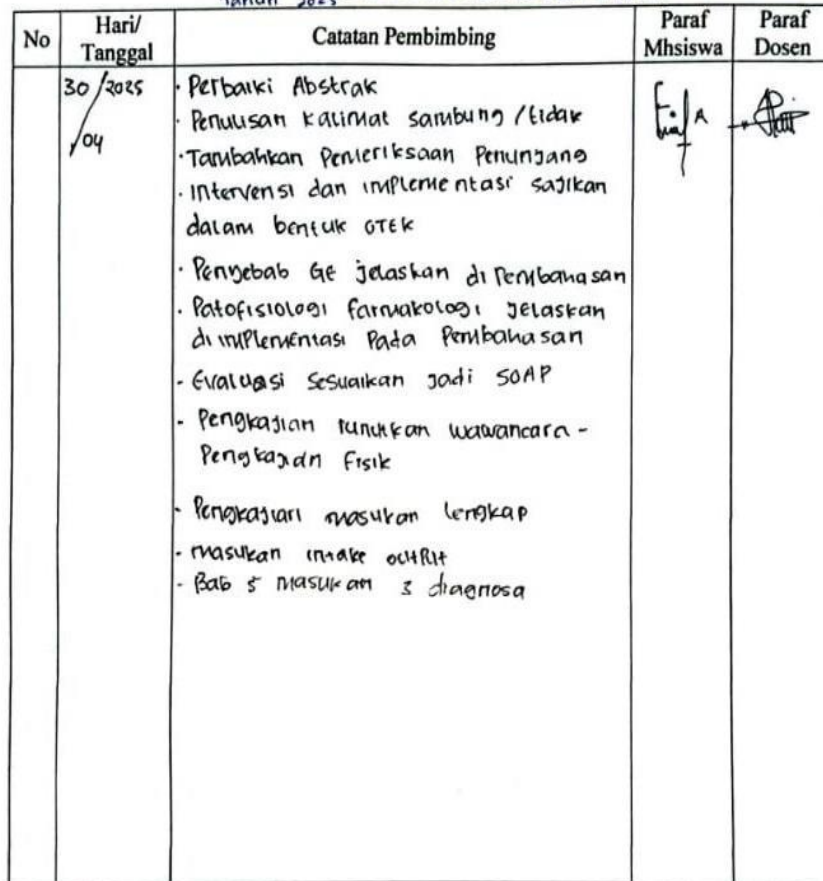 Tahun 2025
No
Hari/
Tanggal
Catatan Pembimbing
Paraf
Mhsiswa
Paraf
Dosen
30/2025
/04
· Perbaiki Abstrak
· Penulisan kalimat sambung /tidak
· Tambahkan Pemeriksaan Penunjang
· Intervensi dan implementasi sajikan
dalam bentuk OTEK
· Penyebab GE jelaskan di Pembahasan
· Patofisiologi farmakologi jelaskan
di implementasi Pada Pembahasan
- Evaluasi Sesuaikan jadi SOAP
- Pengkajian wawancara -
Pengkajian Fisik
- Pengkajian masukan lengkap
- masukan intake
- Bab 5 masukan 3 diagnosa